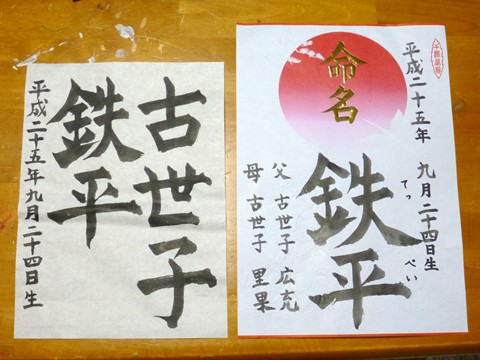 古世子
鉄平
平成二十五年九月二十四日生
命名
平成二十五年
九月二十四日生
鉄平
てっぺい
父 古世子 広充
母 古世子 里果